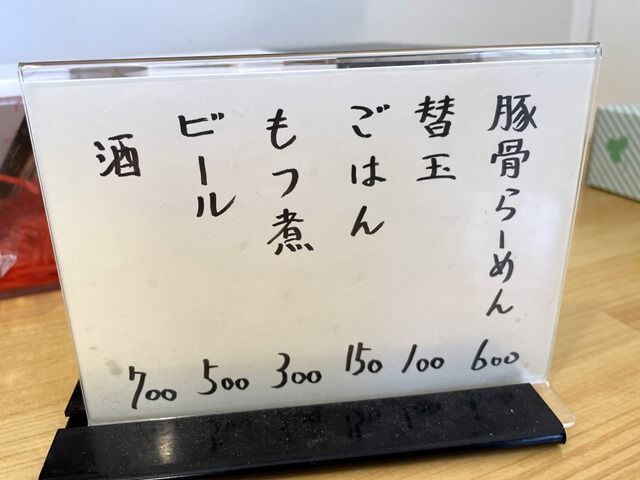 豚骨らーめん 600
替玉 100
ごはん 150
もつ煮 300
ビール 500
酒 700